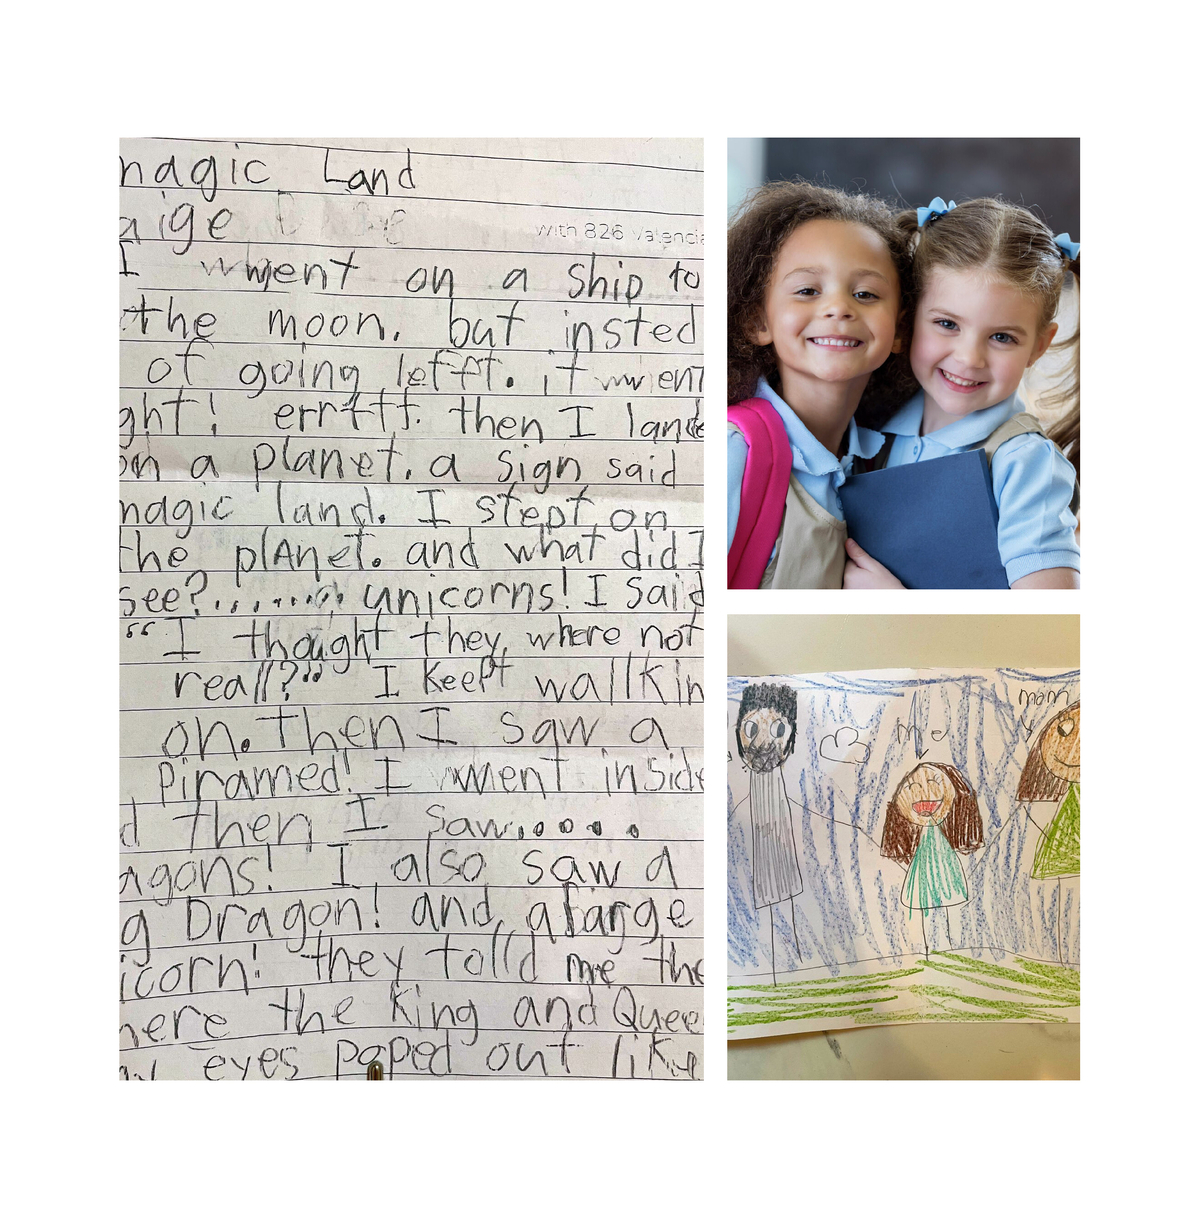 magic Land
aige
with 826 Valencia
I went on a ship to
the moon. but insted
of going lefft. it went
ght! errttt. then I lande
on a planet. a sign said
magic land. I stept on
the plAnet. and what did I
see?....... unicorns! I said
“I thought they where not
reall?” I keept walkin
on. then I saw a
Piramed! I went inside
d then I saw.....
agons! I also saw a
g Dragon! and a large
icorn! they tolld me the
here the King and Quee
eyes poped out like
me
mom